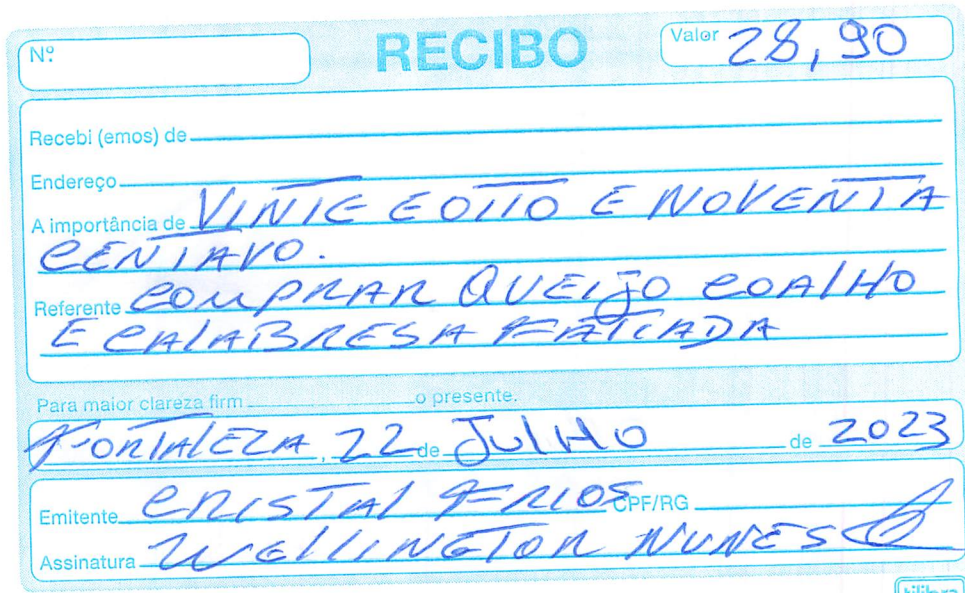 Nº
RECIBO
Valor 28,90
Recebi (emos) de
Endereço
A importância de VINTE E OITO E NOVENTA
CENTAVO.
Referente COMPRAR QUEIJO COALHO
E CALABRESA FATIADA
Para maior clareza firm o presente.
FORTALEZA, 22 de JULHO de 2023
Emitente CRISTAL FRIOS CPF/RG
Assinatura WELLINGTON NUNES
tilibra